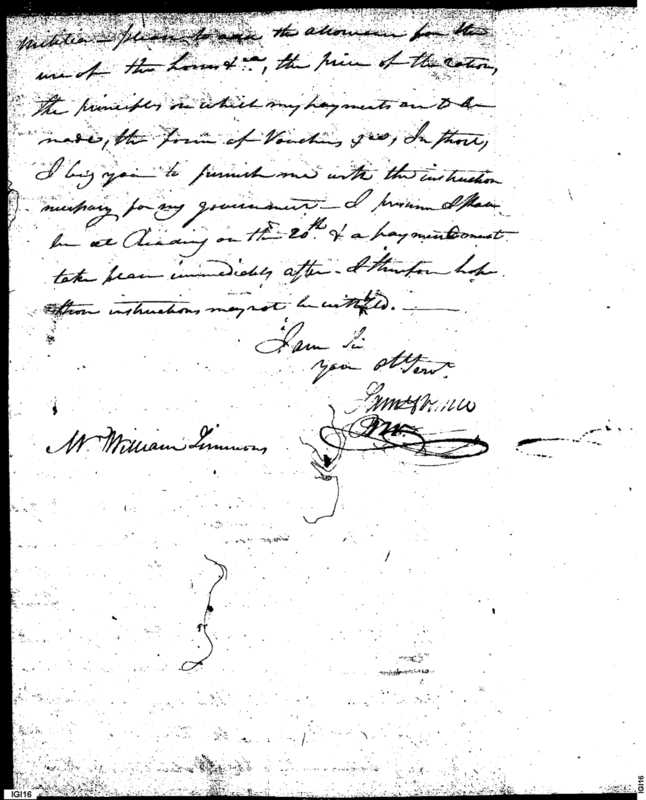 militia - please to add the allowance for the
use of the horses &ca, the price of the ration,
the principles on which my payments are to be
made, the form of Vouchers &ca, In short,
I beg you to furnish me with the instruction
necessary for my government - I presume I shall
be at Reading on the 20th & a payment must
take place immediately after - I therefore hope
those instructions may not be withheld. -
I am Sir
your Obt Servt.
Mr William Simmons
IGI16
IGI16